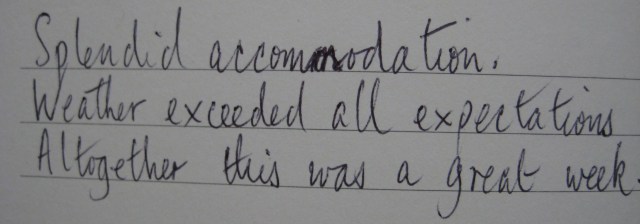 Splendid accommodation.
Weather exceeded all expectations
Altogether this was a great week.